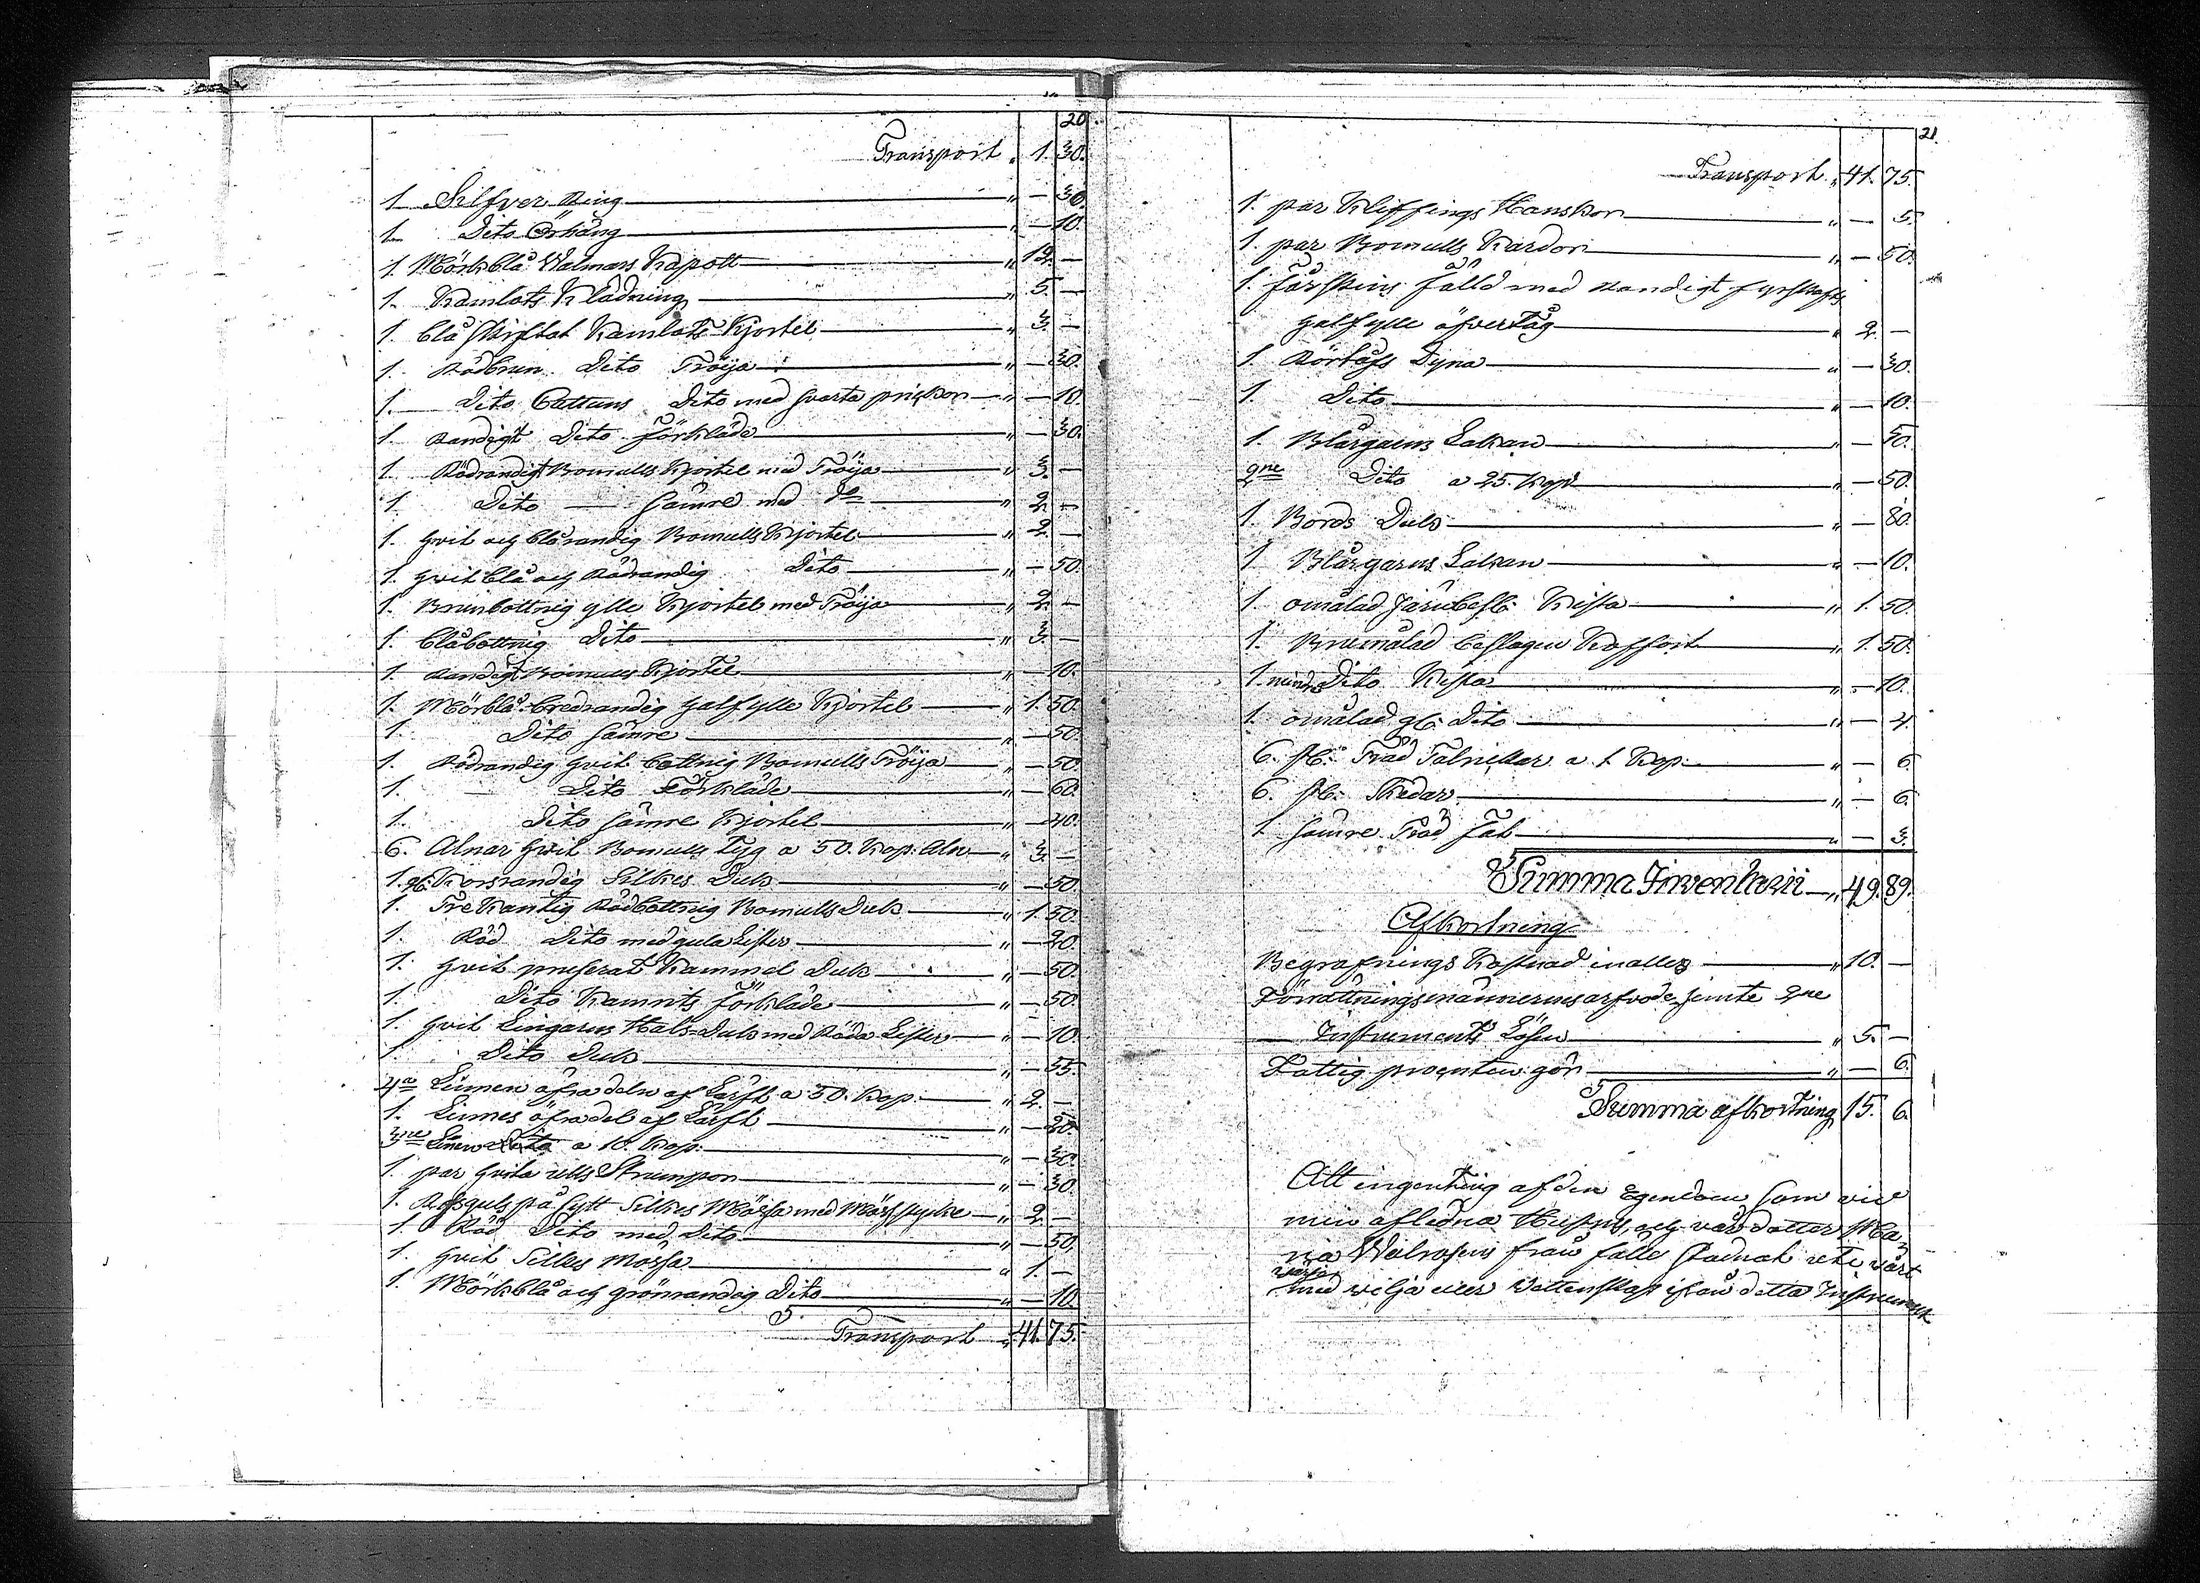 20.
Transport „ 1. 30.
1. Silfver Ring „ — 30.
1. Dito Örhäng „ — 10.
1. Mörkblå Walmars Kapott „ 12. —
1. Kamlots Klädning „ 5. —
1. blå skiftat Kamlots Kjortel „ 3. —
1. Rödbrun Dito Tröija „ — 30.
1. Dito Cattuns Dito med svarta prickor „ — 10.
1. Randigt Dito förkläde „ — 30.
1. Rödrandigt Bomulls Kjortel med Tröija „ 3. —
1. Dito — sämre med do „ 2. —
1. hvit och blårandig Bomulls Kjortel „ 2. —
1. hvit blå och Rödrandig Dito „ — 50.
1. Brunbottnig ylle Kjortel med Tröija „ 2. —
1. blåbottnig Dito „ 3. —
1. Randigt Bomulls Kjortel „ — 10.
1. Mörblå bredrandig halfylle Kjortel „ 1. 50.
1. Dito sämre „ — 50.
1. Rödrandig hvit bottnig Bomulls Tröija „ — 50.
1. Dito Förkläde „ — 60.
1. Dito sämre Kjortel „ — 40.
6. Alnar hvit Bomulls tyg a 50. Kop. Aln „ 3. —
1. gl. Korsrandig Silkes Duk „ — 50.
1. Trekantig Rödbottnig Bomulls Duk „ 1. 50.
1. Röd Dito med gula Lister „ — 20.
1. hvit Kammal Duk „ — 50.
1. Dito förkläde „ — 50.
1. hvit Lingarns Hals-Duk med Röda Lister „ — 10.
1. Dito Duk „ — 55.
4a Linnen öfradeln af Lärft a 50. Kop. „ 2. —
1. Linnes öfradel af Lärft „ — 20.
3ne Dito a 10. Kop. „ — 30.
1. par hvita ulls Strumpor „ — 30.
1. på sytt Silkes Mössa med Mösstycke „ 2. —
1. Röd Dito med Dito „ — 50.
1. hvit Silkes Mössa „ 1. —
1. Mörkblå och grönrandig Dito „ — 10.
Transport „ 41. 75.
21.
Transport „ 41. 75.
1. par Klippings Hanskor „ — 5.
1. par Bomulls Kardor „ — 50.
1. fårskins fälld med Randigt fyrskafts
halfylle öfvertåg „ 2. —
1. Dyna „ — 30.
1. Dito „ — 10.
1. Blårgarns Lakan „ — 50.
2ne Dito a 25. Kop. „ — 50.
1. Bords Duk „ — 80.
1. Blårgarns Lakan „ — 10.
1. omålad Järnbesl. Kista „ 1. 50.
1. Brunmålad beslagen Koffort „ 1. 50.
1. mindre Dito Kista „ — 10.
1. omålad gl. Dito „ — 4.
6. st. Träd Talrickar a 1 Kop. „ — 6.
6. st. Skedar „ — 6.
1 sämre Träd fat „ — 3.
Summa Inventarii „ 49. 89.
Afkortning
Begrafnings Kostnad inalles „ 10. —
Förrättningsmännernas arfvode jemte 2ne
Instruments Lösen „ 5. —
Fattig procenten gör „ — 6.
Summa afkortning 15. 6.
Alt ingenting af den Egendom som vid
min aflidna Hustrus, och vår dotter Ma-
ria Walrosens frånfälle stadnat uti vårt
värjo
med vilja eller Vettenskap ifrån detta Instrument